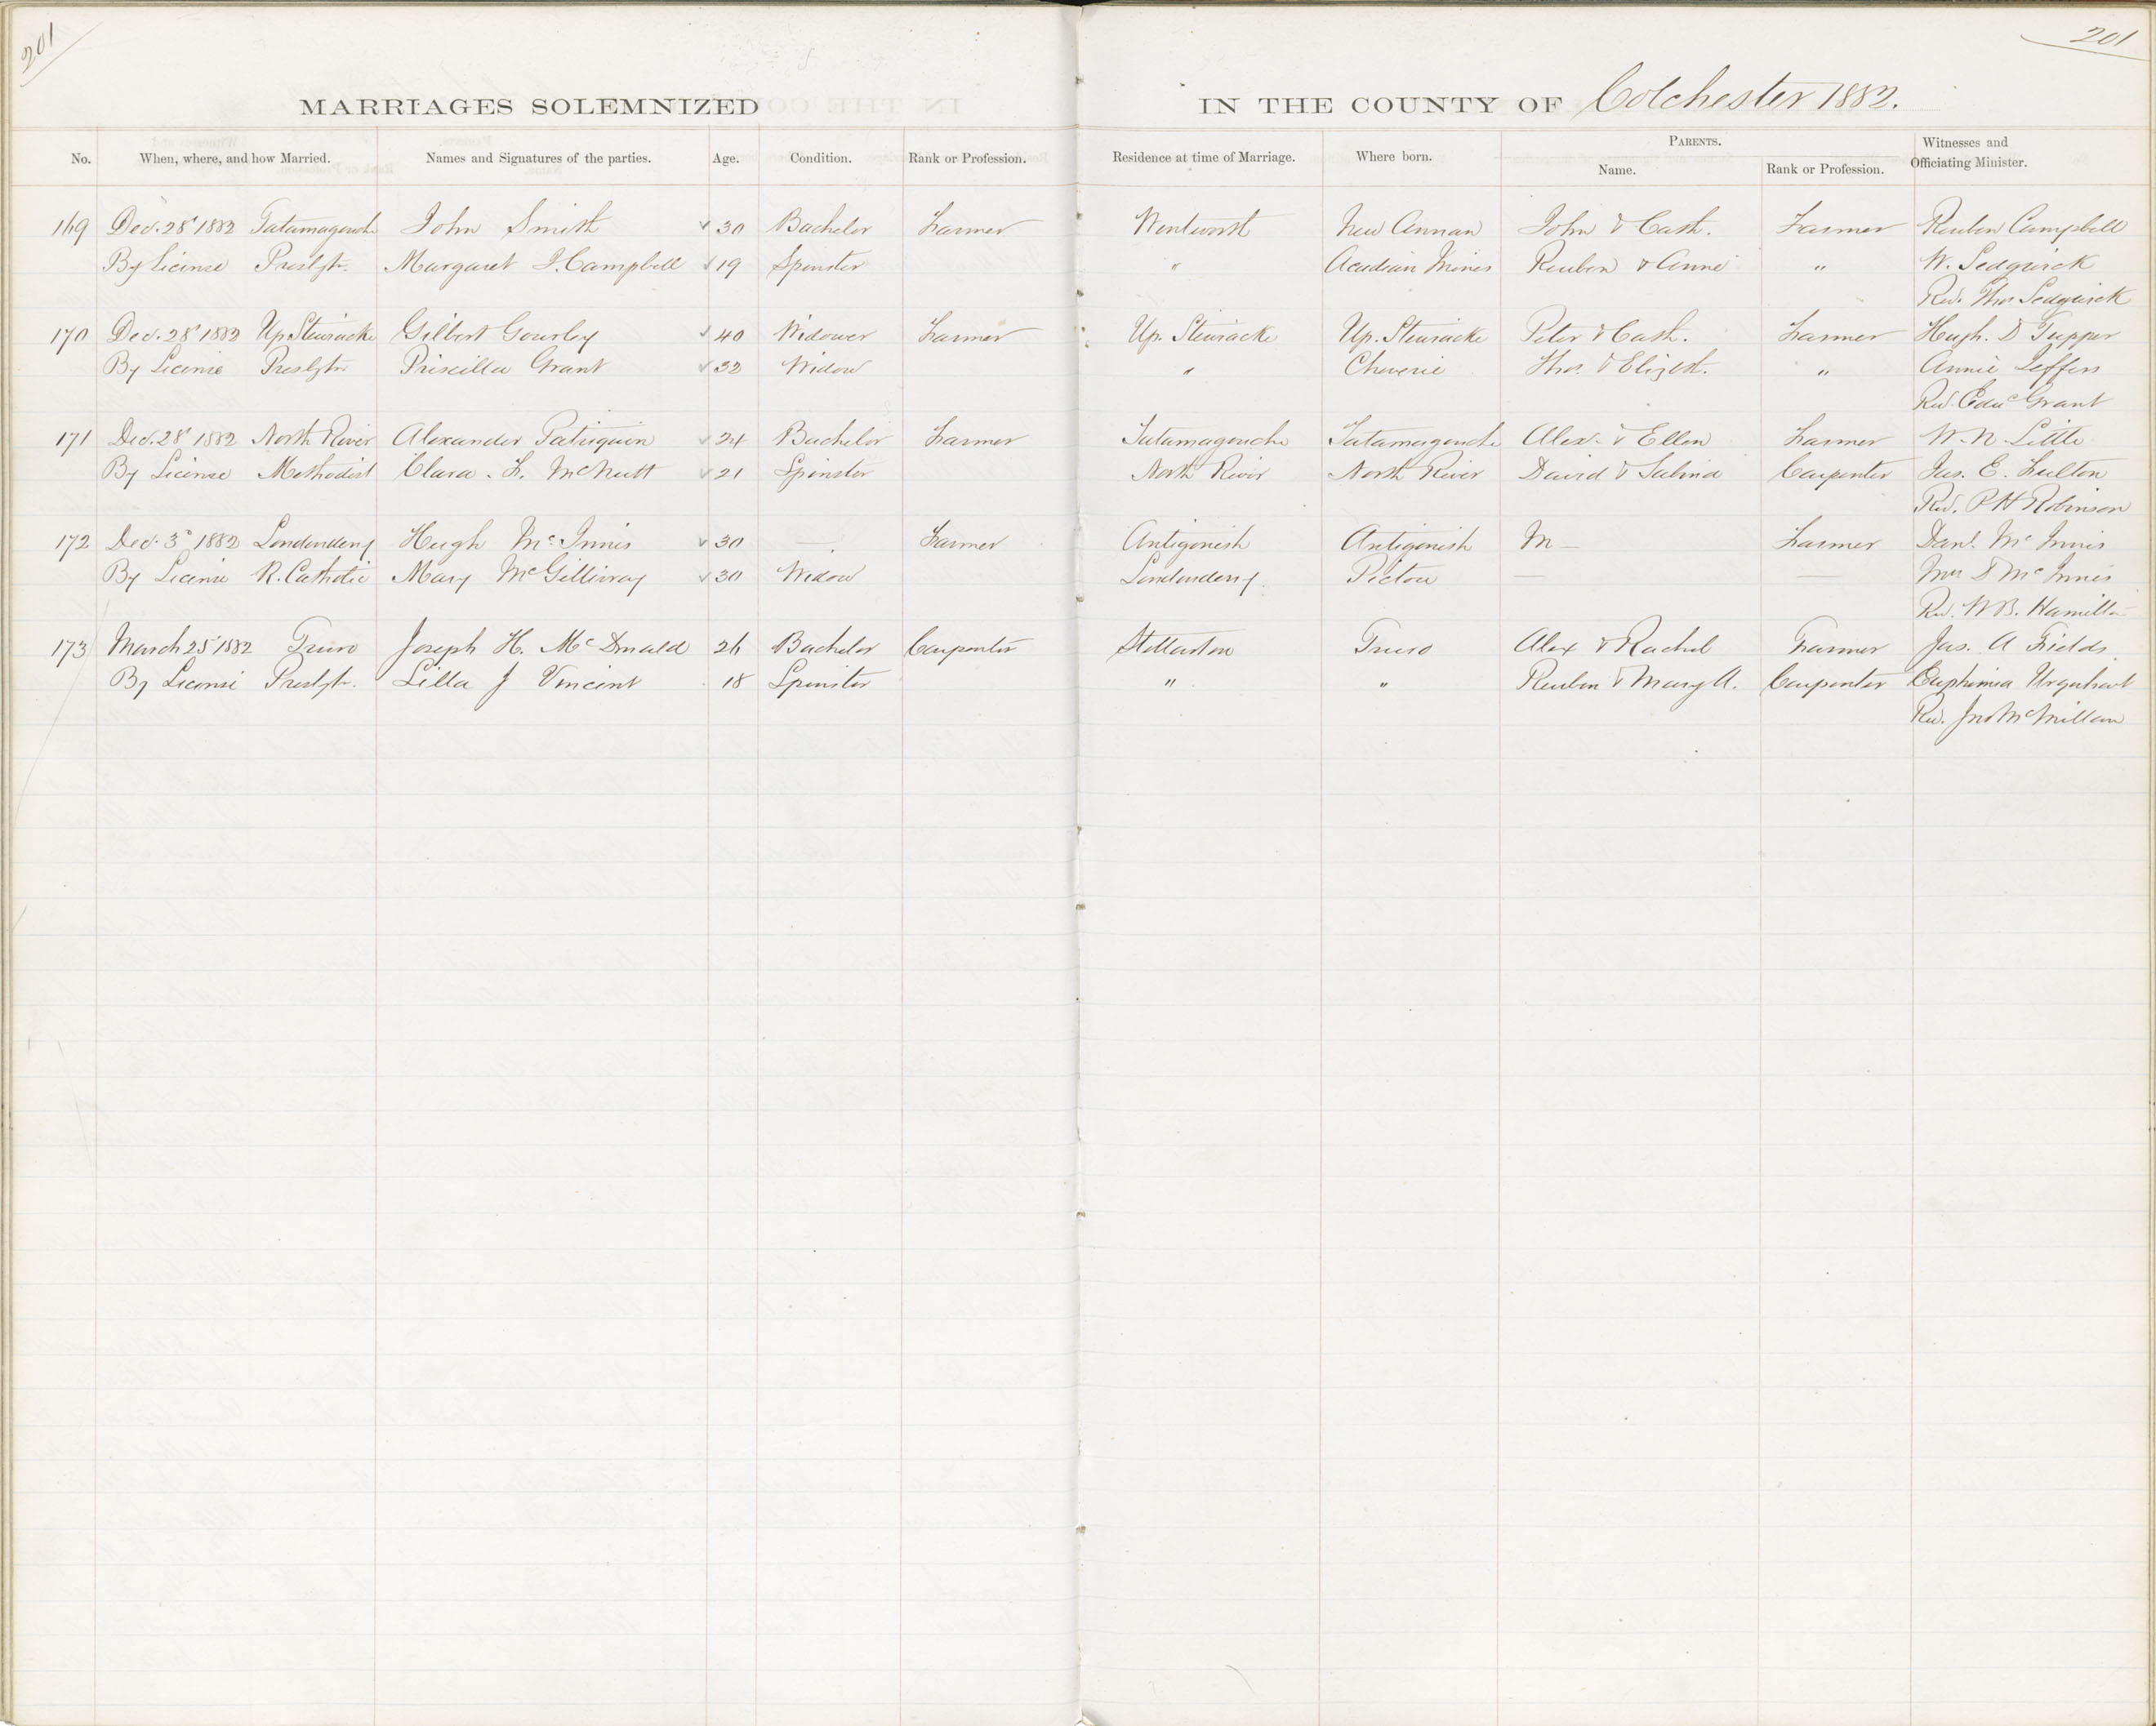 201
201
MARRIAGES SOLEMNIZED IN THE COUNTY OF Colchester 1882.
No. When, where, and how Married. Names and Signatures of the parties. Age. Condition. Rank or Profession. Residence at time of Marriage. Where born. PARENTS. Name. Rank or Profession. Witnesses and Officiating Minister.
169 Dec. 28 1882 Tatamagouche John Smith 30 Bachelor Farmer Wentworth New Annan John & Cath. Farmer Reuben Campbell
By License Presbytr. Margaret J. Campbell 19 Spinster " Acadian Mines Reuben & Anne " W. Sedgwick
Rev. Thos Sedgwick
170 Dec. 28 1882 Up Stewiacke Gilbert Gourley 40 Widower Farmer Up. Stewiacke Up. Stewiacke Peter & Cath. Farmer Hugh. D Tupper
By License Presbytr Priscilla Grant 32 Widow " Cheverie Thos. & Elizbt. " Annie Jeffers
Rev. Edwd Grant
171 Dec. 28 1882 North River Alexander Patriquin 24 Bachelor Farmer Tatamagouche Tatamagouche Alex. & Ellen Farmer W. N. Little
By License Methodist Clara. F. McNutt 21 Spinster North River North River David & Salina Carpenter Jas. E. Fulton
Rev. P H Robinson
172 Dec. 3 1882 Londonderry Hugh McInnis 30 — Farmer Antigonish Antigonish M — Farmer Danl. McInnis
By License R. Catholic Mary McGillivray 30 Widow Londonderry Pictou — — Mrs D McInnis
Rev. W B. Hamilton
173 March 25 1882 Truro Joseph H. McDonald 26 Bachelor Carpenter Stellarton Truro Alex & Rachel Farmer Jas. A Fields
By License Presbytr. Lilla J Vincent 18 Spinster " " Reuben & Mary A. Carpenter Euphimia Urquhart
Rev. Jno McMillan